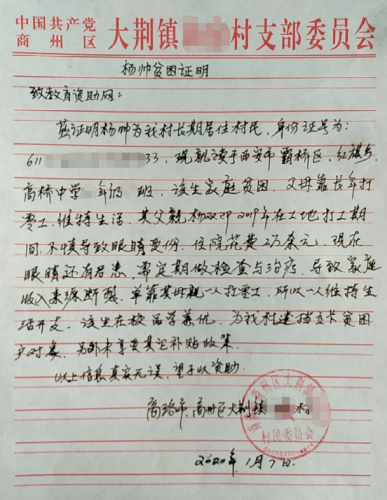 中国共产党
商州区 大荆镇 村支部委员会
杨帅贫困证明
致教育资助网：
兹证明杨帅为我村长期居住村民，身份证号为：
611 33，现就读于西安市灞桥区，红旗乡
高桥中学 年级 班，该生家庭贫困，父母靠长年打
零工，维持生活，其父亲杨 在工地打工期
间，不慎导致眼睛受伤，住院花费2万余元，现在
眼睛还有后患，需定期做检查与治疗，导致家庭
收入来源断裂，单靠其母亲一人打零工，所以一人维持生
活开支。该生在校品学兼优，为我村建档立卡贫困
户对象，另外未享受其它补贴政策。
以上信息真实无误，望予以资助。
商洛市，商州区大荆镇 村
村民委员会
2020年1月7日